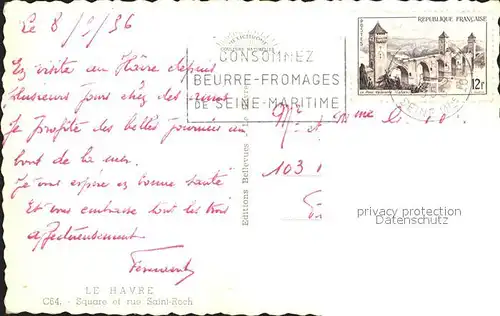 Le 8/5/56
En visite au Hâvre depuis
plusieurs jours chez des amis
Je profite des belles journées au
bord de la mer.
Je vous espère en bonne santé
Et vous embrasse tout les trois
affectueusement
CONSOMMEZ
BEURRE-FROMAGES
DE SEINE-MARITIME
REPUBLIQUE FRANÇAISE
POSTES
12F
Mr et Mme
103
Editions Bellevues - Le Havre
privacy protection
Datensammler
LE HAVRE
C64. - Square et rue Saint-Roch